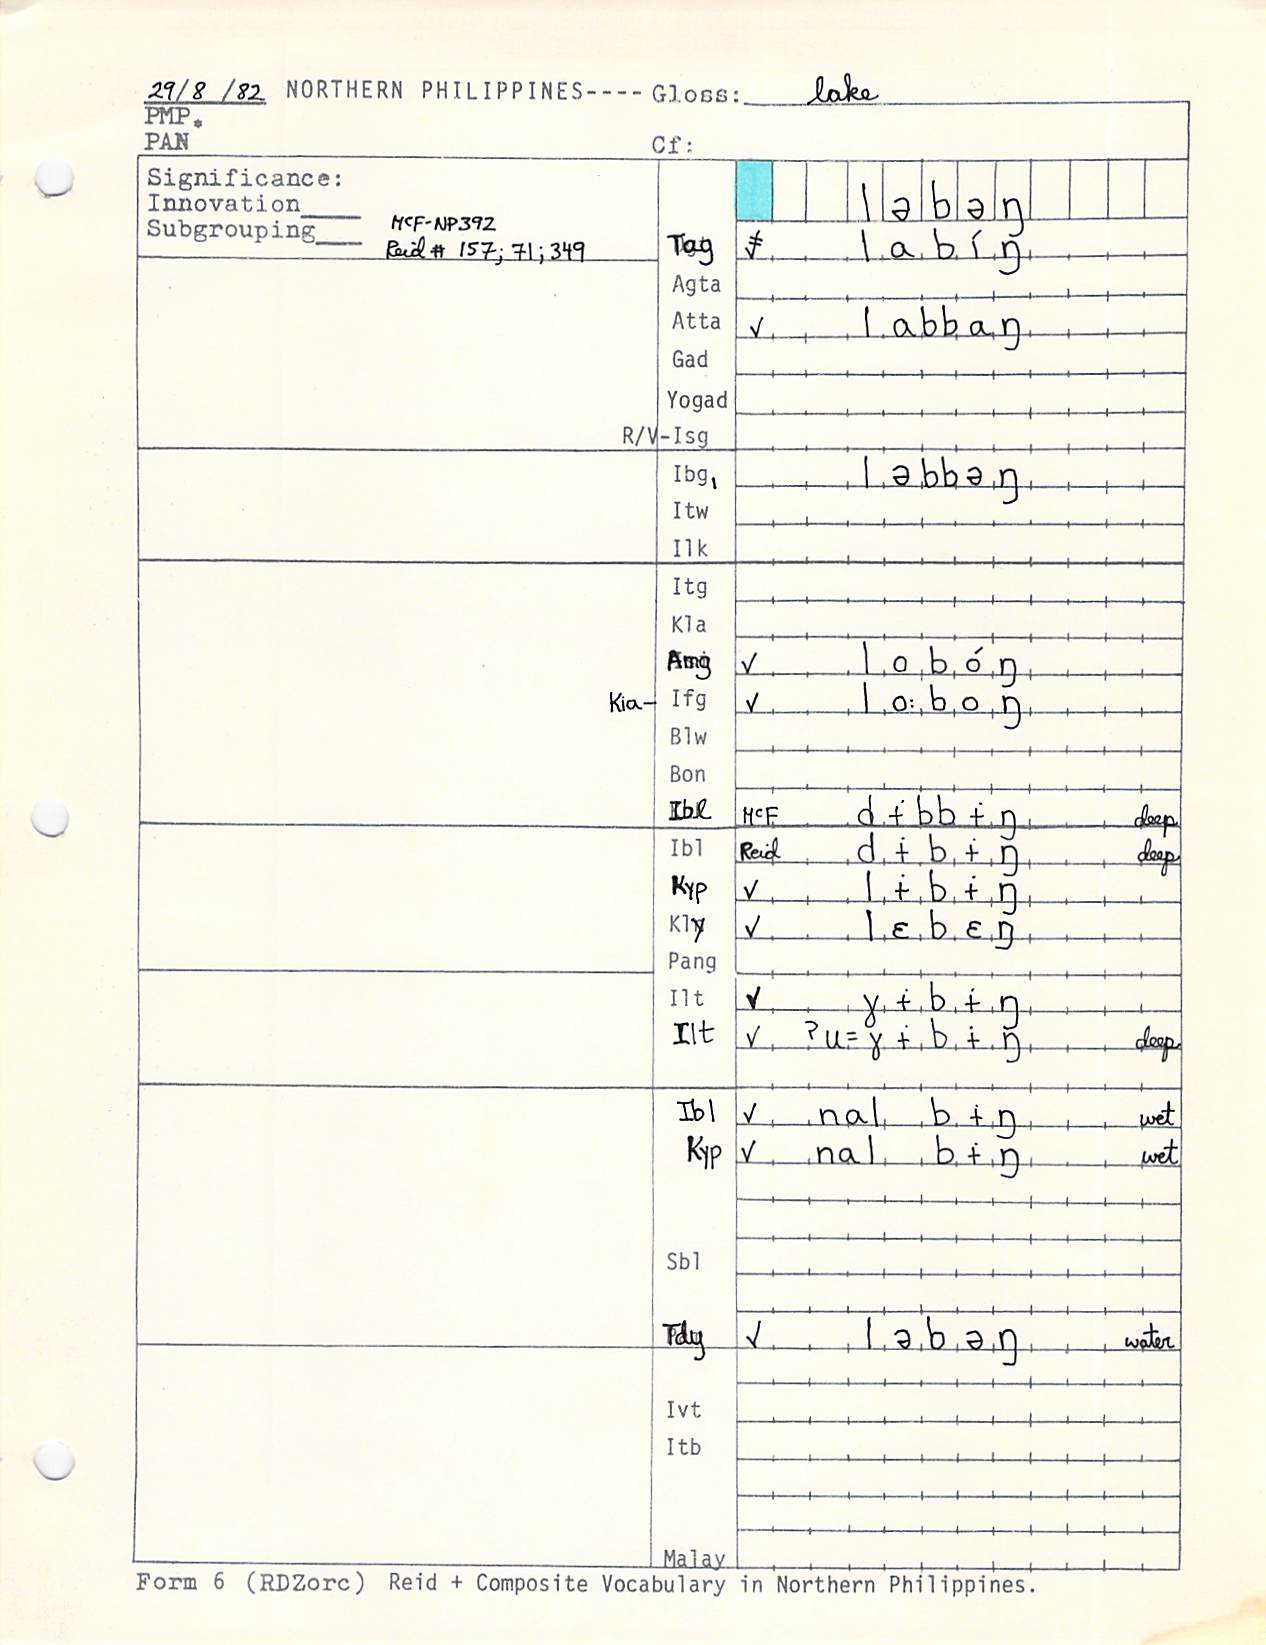 29/8 /82 NORTHERN PHILIPPINES---- Gloss: lake
PMP*
PAN Cf:
Significance:
Innovation____ ləbəŋ
Subgrouping____ McF-NP392
Reid # 157; 71; 349
Tag ≠ labíŋ
Agta
Atta ✓ labbaŋ
Gad
Yogad
R/V-Isg
Ibg₁ ləbbəŋ
Itw
Ilk
Itg
Kla
Amg ✓ lobóŋ
Kia- Ifg ✓ lo:boŋ
Blw
Bon
Ibl McF dɨbbɨŋ deep
Ibl Reid dɨbɨŋ deep
Kyp ✓ lɨbɨŋ
Kly ✓ lɛbɛŋ
Pang
Ilt ✓ ɣɨbɨŋ
Ilt ✓ ʔu=ɣɨbɨŋ deep
Ibl ✓ nal bɨŋ wet
Kyp ✓ nal bɨŋ wet
Sbl
Tdy ✓ ləbəŋ water
Ivt
Itb
Malay
Form 6 (RDZorc) Reid + Composite Vocabulary in Northern Philippines.